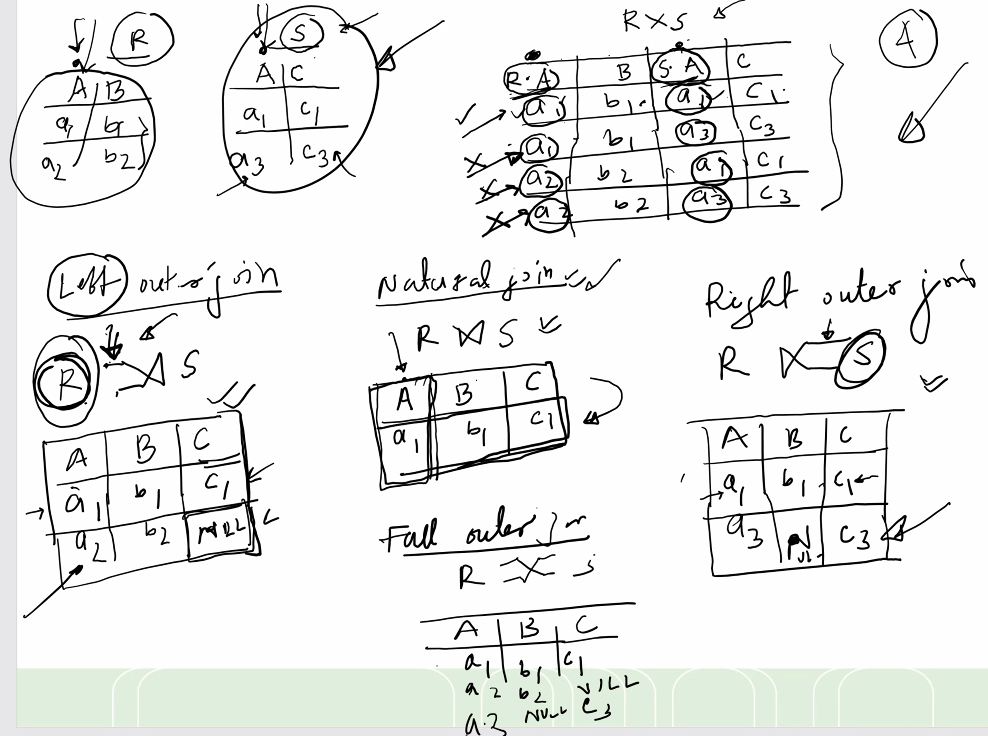 R
A B
a1 b1
a2 b2
S
A C
a1 c1
a3 c3
R X S
R.A B S.A C
a1 b1 a1 c1
a1 b1 a3 c3
a2 b2 a1 c1
a2 b2 a3 c3
4
Left outer join
R ⟕ S
A B C
a1 b1 c1
a2 b2 NULL
Natural join
R ⋈ S
A B C
a1 b1 c1
Full outer join
R ⟗ S
A B C
a1 b1 c1
a2 b2 NULL
a3 NULL c3
Right outer join
R ⟖ S
A B C
a1 b1 c1
a3 NUL c3